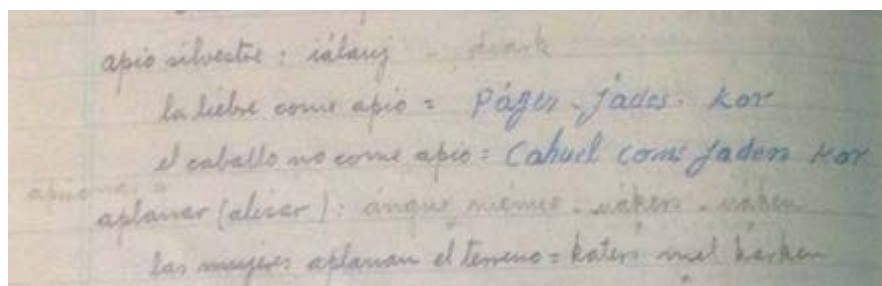 apio silvestre : iálauj -
la liebre come apio = Páger - jades. kor
el caballo no come apio = Cahuel com: jaden kor
aplanar (alisar) :
las mujeres aplanan el terreno = katen mel karken